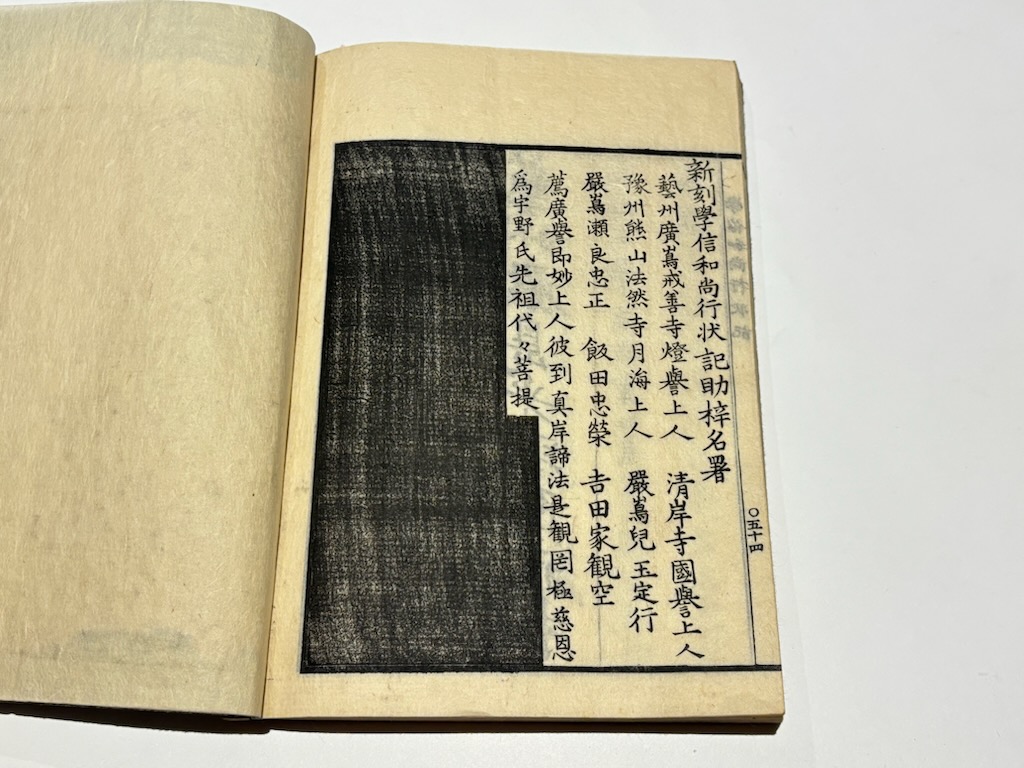 新刻學信和尚行状記助梓名署
藝州廣嶌戒善寺燈譽上人 清岸寺國譽上人
豫州熊山法然寺月海上人 嚴嶌兒玉定行
嚴嶌瀬良忠正 飯田忠榮 吉田家観空
薦廣譽即妙上人彼到真岸諦法是観罔極慈恩
爲宇野氏先祖代々菩提
〇五十四